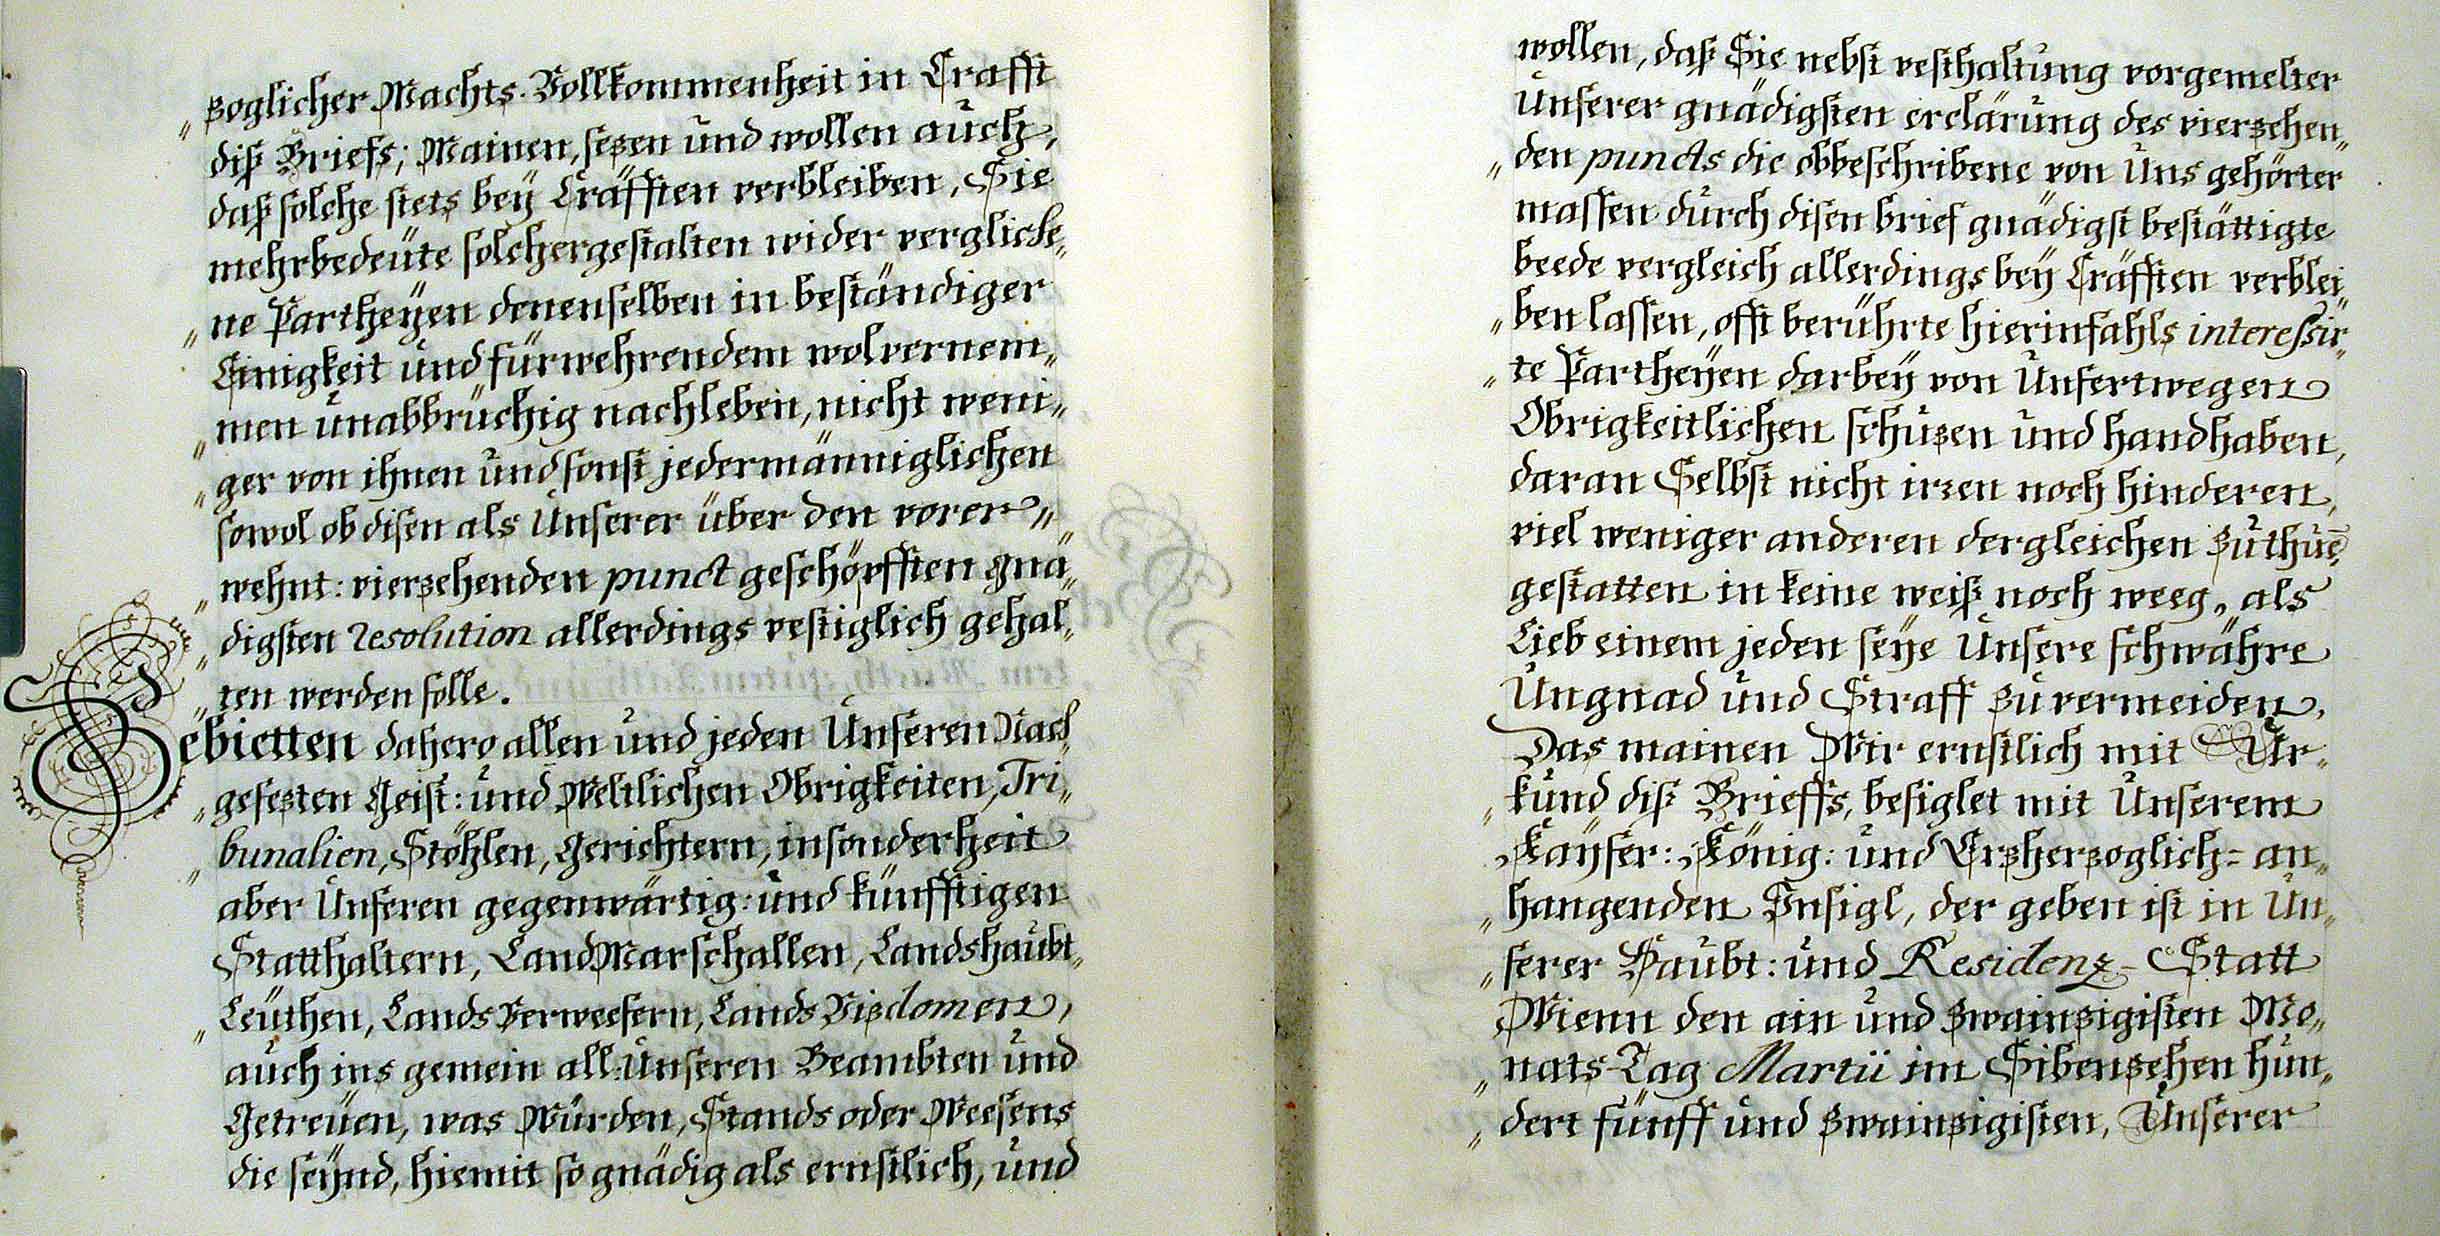 „zoglicher Machts-Vollkommenheit in Crafft
diß Briefs; Mainen, sezen und wollen auch,
daß solche stets beÿ Cräfften verbleiben, Sie
mehrbedeüte solchergestalten wider vergliche„
„ne Partheÿen denenselben in beständiger
Einigkeit und fürwehrendem wolvernem„
„men unabbrüchig nachleben, nicht weni„
„ger von ihnen und sonst jedermänniglichen
sowol ob disen als Unserer über den vorer„
„wehnt: vierzehenden punct geschörfften gnä„
„digsten resolution allerdings vestiglich gehal„
„ten werden solle.
Gebietten dahero allen und jeden Unseren Nach„
„gesezten Geist: und Weltlichen Obrigkeiten, Tri„
„bunalien, Stöhlen, Gerichtern, insonderheit
aber Unseren gegenwärtig: und künfftigen
Statthaltern, LandMarschallen, Landshaubt„
„Leüthen, Lands Verweesern, Lands Vizdomen,
auch ins gemein all: Unseren Beambten und
Getreüen, was Würden, Stands oder Weesens
die seÿnd, hiemit so gnädig als ernstlich, und
wollen, daß Sie nebst vesthaltung vorgemelter
Unserer gnädigsten erclärung des vierzehen„
„den puncts die obbeschribene von Uns gehörter
massen durch disen brief gnädigst bestättigte
beede vergleich allerdings beÿ Cräfften verblei„
„ben lassen, offt berührte hierinfahls interessir„
„te Partheÿen darbeÿ von Unsertwegen
Obrigkeitlichen schüzen und handhaben,
daran Selbst nicht irren noch hinderen,
viel weniger anderen dergleichen zuthuē,
gestatten in keine weiß noch weeg, als
Lieb einem jeden seÿe Unsere schwähre
Ungnad und Straff zu vermeiden.
Das mainen Wir ernstlich mit Ur„
„kund diß Brieffs, besiglet mit Unserem
Kaÿser: König: und Erzherzoglich= an„
„hangenden Insigl, der geben ist in Un„
„serer Haubt: und Residenz-Statt
Wienn den ain und zwainzigisten Mo„
„nats-Tag Martii im Sibenzehen hun„
„dert fünff und zwainzigisten, Unserer